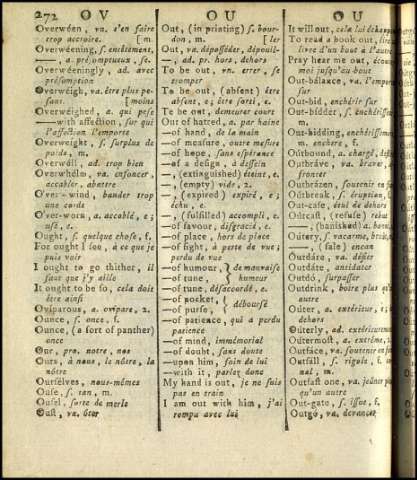 272 OV
OU
OU
Overwéen, va. s'en faire
trop accroire. [m.
Overwéening, s. entêtement,
——, a. présomptueux, se.
Overwéeningly, ad. avec
présomption
Overwéigh, va. être plus pe-
sant. [moins
Overwéighed, a. qui pese
——with affection, sur qui
l'affection l'emporte
Overwéight, s. surplus de
poids, m.
Overwéll, ad. trop bien
Overwhélm, va. enfoncer,
accabler, abattre
Over-wind, bander trop
une corde
O'ver-worn, a. accablé, e;
usé, e.
Ought, s. quelque chose, f.
For ought I see, à ce que je
puis voir
I ought to go thither, il
faut que j'y aille
It ought to be so, cela doit
être ainsi
Oviparous, a. ovipare, 2.
Ounce, s. once, f.
Ounce, (a sort of panther)
once
Our, pro. notre, nos
Ours, à nous, le nôtre, la
nôtre
Oursélves, nous-mêmes
Ouse, s. tan, m.
Ousel, sorte de merle
Oust, va. ôter
Out, (in printing) s. bour-
don, m. [ler
Out, va. déposséder, dépouil-
—, ad. pr. hors, dehors
To be out, vn. errer, se
tromper
To be out, (absent) être
absent, e; être sorti, e.
To be out, demeurer court
Out of hatred, a. par haine
—of hand, de la main
—of measure, outre mesure
—of hope, sans espérance
—of a design, à dessein
—, (extinguished) éteint, e.
—, (empty) vide, 2.
—, (expired) expiré, e;
échu, e.
—, (fulfilled) accompli, e.
—of favour, disgracié, e.
—of place, hors de place
—of sight, à perte de vue;
perdu de vue
—of humour, } de mauvaise
—of tune, } humeur
—of tune, désaccordé, e.
—of pocket, } déboursé
—of purse, }
—of patience, qui a perdu
patience
—of mind, immémorial
—of doubt, sans doute
—upon him, foin de lui
—with it, parlez donc
My hand is out, je ne suis
pas en train
I am out with him, j'ai
rompu avec lui
It will out, cela lui échappera
To read a book out, lire
livre d'un bout à l'autre
Pray hear me out, écoutez
moi jusqu'au bout
Out-bálance, va. l'emporter
sur
Out-bid, enchérir sur
Out-bídder, s. enchérisseur,
m.
Out-bidding, enchérissement,
m. enchere, f.
Outbound, a. chargé, destiné
Outbráve, va. braver,
fronter
Outbrázen, soutenir en face
Outbreak, s. éruption, f.
Out-cast, être de dehors
Outcast, (refuse) rebut
—, (banished) a. banni,
Outcry, s. vacarme, bruit, m.
——, (sale) encan
Outdáre, va. défier
Outdáte, antidater
Outdó, surpasser
Outdrink, boire plus qu'un
autre
Outer, a. extérieur, e;
dehors
Outerly, ad. extérieurement
Outermost, a. extrême, 2.
Outfáce, va. soutenir en face
Outfall, s. rigole, f.
nal, m.
Outfast one, va. jeûner plus
qu'un autre
Out-gate, s. issue, f.
Outgó, va. devancer